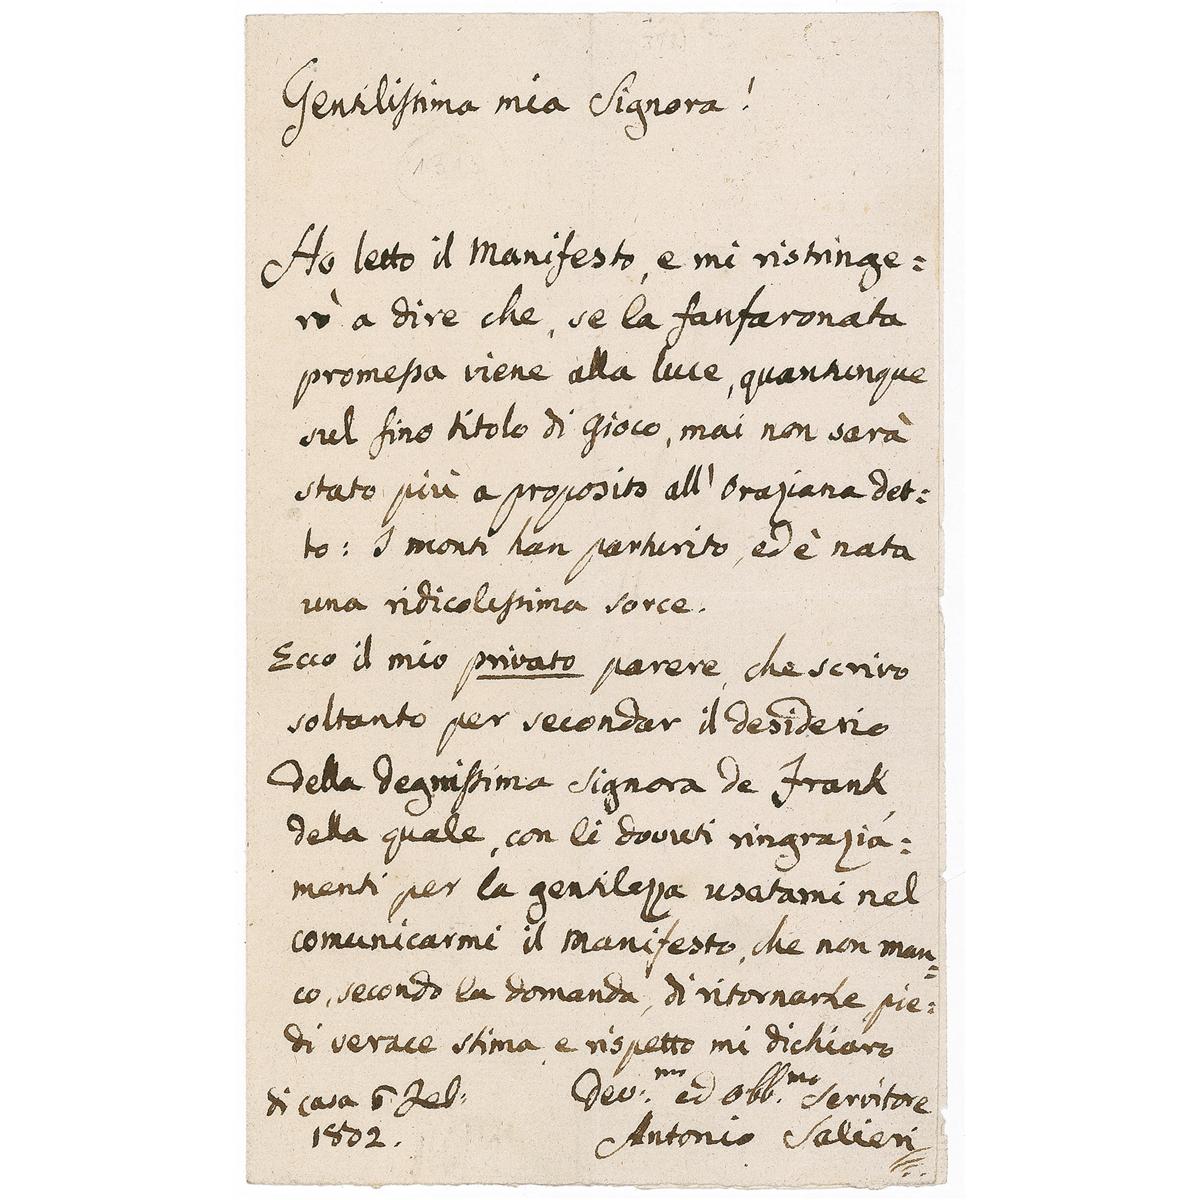 Gentilissima mia Signora!
Ho letto il Manifesto, e mi ristringe=
rò a dire che, se la fanfaronata
promessa viene alla luce, quantunque
sul fino titolo di Gioco, mai non sarà
stato più a proposito all' Oraziana det=
to: I monti han parturito, ed è nata
una ridicolissima sorce.
Ecco il mio privato parere, che scrivo
soltanto per secondar il desiderio
della degnissima Signora de Frank,
della quale, con li dovuti ringraziá=
menti per la gentilezza usatami nel
comunicarmi il Manifesto, che non man=
co, secondo la domanda, di ritornarle, pie=
di verace stima e rispetto mi dichiaro
di casa 6 Feb:
1802.
Dev.mo ed Obb.mo Servitore
Antonio Salieri